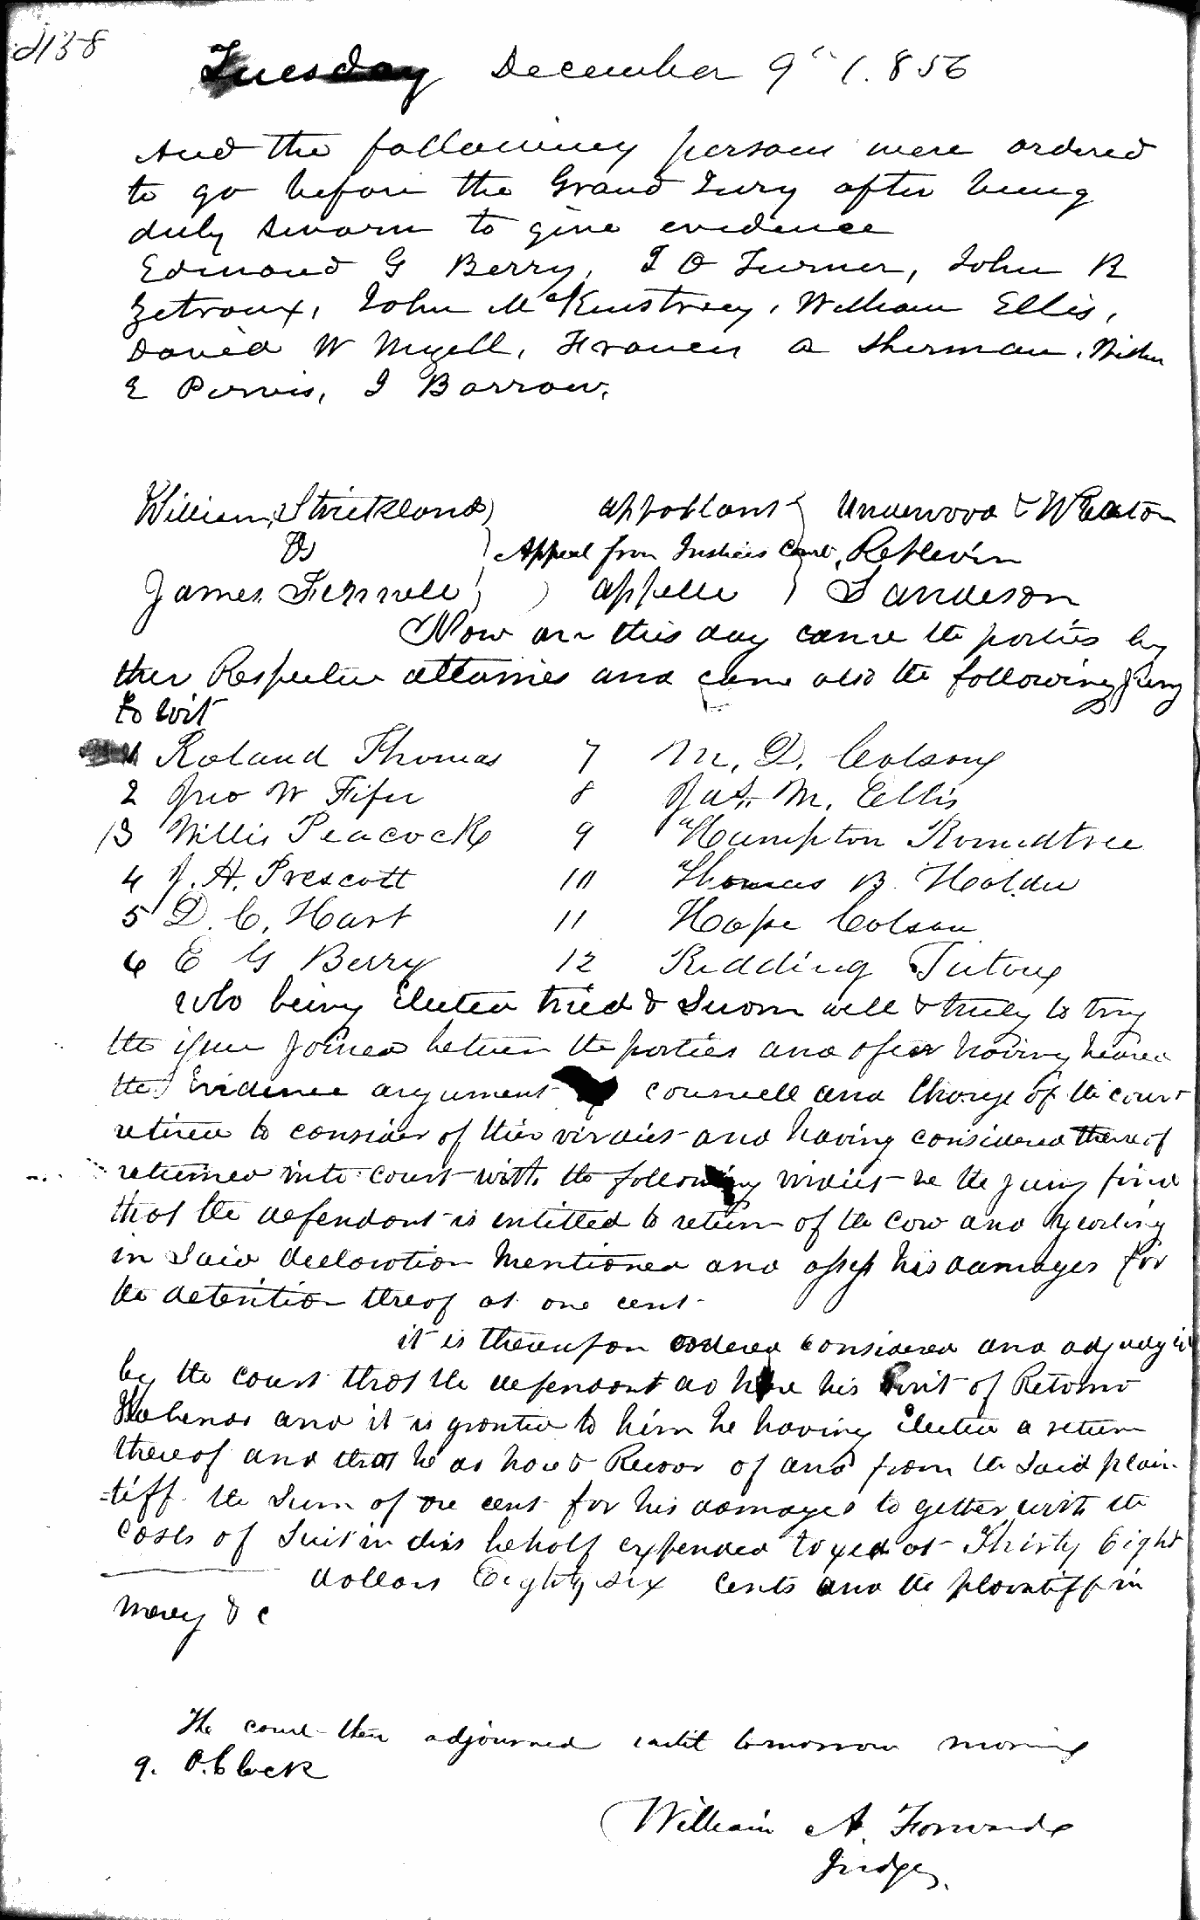 138
Tuesday December 9th 1.856
And the following persons were ordered
to go before the Grand Jury after being
duly sworn to give evidence
Edmond G Berry, J O Turner, John R
John McKinstrey, William Ellis,
David W Mizell, Frances A Sherman,
E Purvis, J Barrow.
William Strickland appellant Underwood & Wheaton
Vs Appeal from Justices Court, Replevin
James Fennell appelle Sanderson
Now on this day came the parties by
ther Respective attornies and came also the following Jury
to wit
1 Roland Thomas 7 M. D. Colsong
2 Jno W Fifer 8 Jas. M. Ellis
3 Willis Peacock 9 Hampton Roundtree
4 J. H. Prescott 10 Thomas B. Holder
5 D. C. Hart 11 Hope Colson
6 E G Berry 12 Redding
who being Elected tried & Sworn well & truly to try
the issue Joined between the parties and after having heared
the Evidence argument counsell and Charge of the court
retired to consider of thier virdict and having considered thereof
returned into court with the following virdict we the jury find
that the defendant is intitled to return of the cow and Yearling
in Said declaration Mentioned and assess his damages for
the detention thereof at one cent
it is thereupon ordered Considered and adjudged
by the court that the defendant do have his Writ of Retorno
Habendo and it is granted to him he having Elected a return
thereof and that he do have & Recover of and from the Said plain-
=tiff the Sum of one cent for his damages to gether with the
Costs of Suit in this behalf expended taxed at Thirty Eight
dollars Eighty Six Cents and the plaintiff in
mercy & c
The court then adjourned until tomorrow morning
9. O.Clock
William A. Forward
Judge.